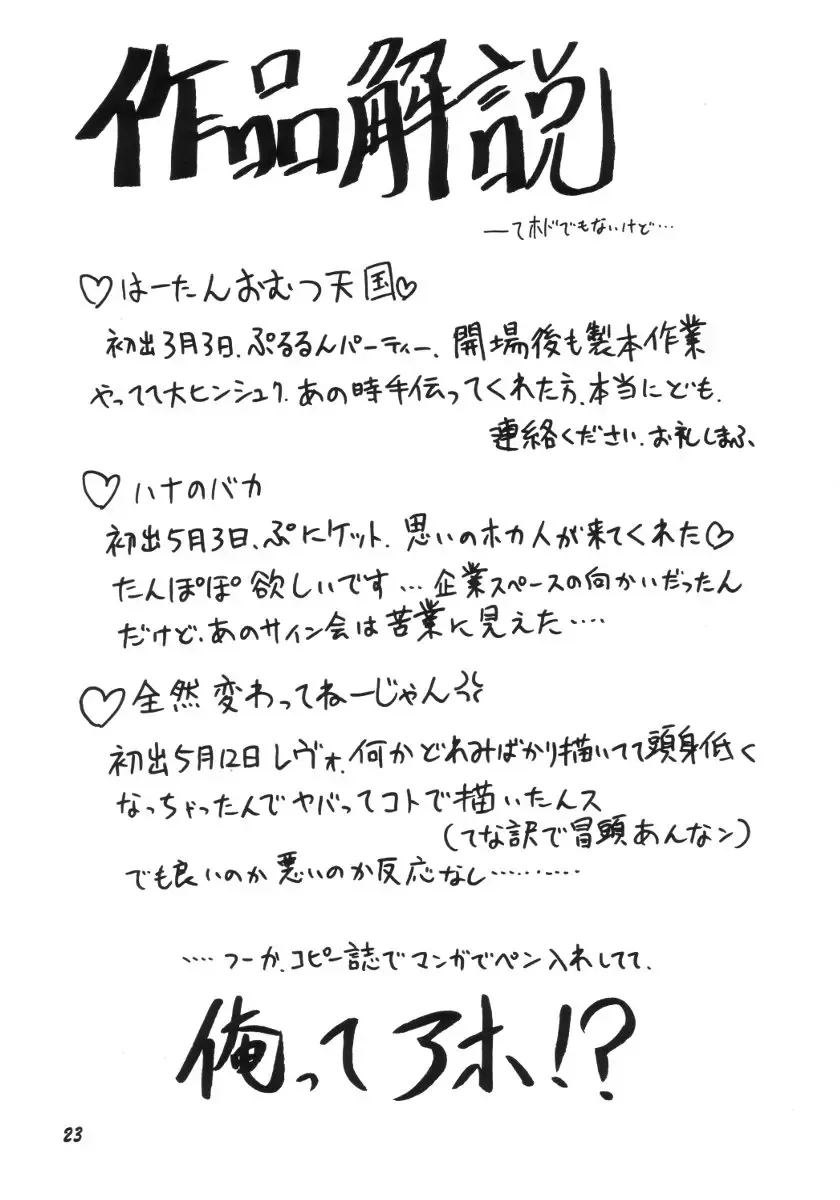 作品解説
ーてホドでもないけど…
♡はーたんおむつ天国♡
初出3月3日、ぷるるんパーティー、開場後も製本作業
やってて大ヒンシュク。あの時手伝ってくれた方、本当にども。
連絡ください。お礼しまふ、
♡ハナのバカ
初出5月3日、ぷにケット。思いのホカ人が来てくれた♡
たんぽぽ欲しいです…企業スペースの向かいだったん
だけど、あのサイン会は苦業に見えた‥‥
♡全然変わってねーじゃん
初出5月12日レヴォ。何かどれみばかり描いてて頭身低く
なっちゃったんでヤバってコトで描いたんス
(てな訳で冒頭あんなン)
でも良いのか悪いのか反応なし………
‥‥つーか、コピー誌でマンガでペン入れしてて、
俺ってアホ!?
23